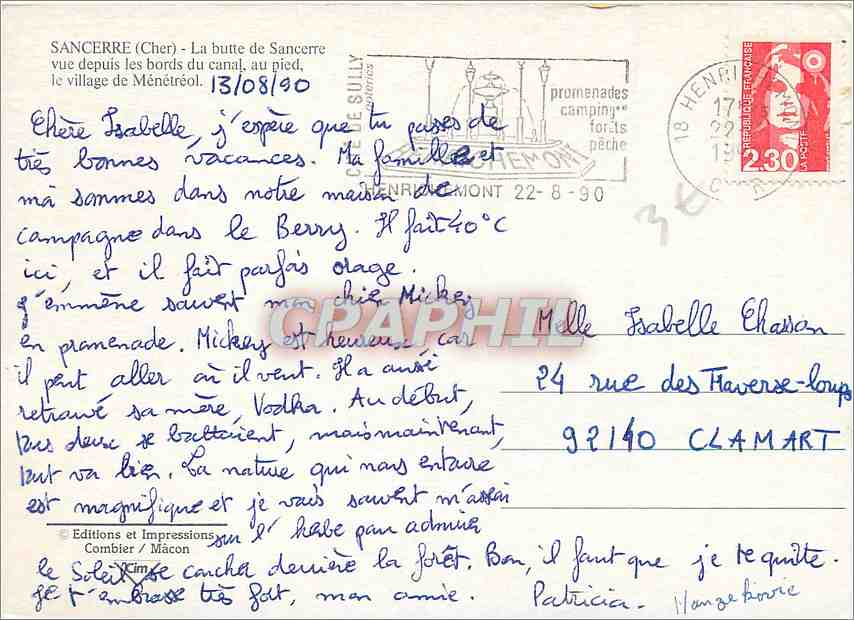 SANCERRE (Cher) - La butte de Sancerre
vue depuis les bords du canal, au pied,
le village de Ménétréol. 13/08/90
Chère Isabelle, j'espère que tu passes de
très bonnes vacances. Ma famille et
mà sommes dans notre maison de
campagne dans le Berry. Il fait 40°C
ici, et il fait parfois orage.
J'emmène souvent mon chien Mickey
en promenade. Mickey est heureuse car
il peut aller où il veut. Il a aussi
retrouvé sa mère, Vodka. Au début,
tous deux se battaient, mais maintenant,
tout va bien. La nature qui nous entoure
est magnifique et je vais souvent m'assoir
sur l'herbe pour admirer
le Soleil se coucher derrière la forêt. Bon, il faut que je te quitte.
Je t'embrasse très fort, mon amie. Patricia. Hanzekovic
© Editions et Impressions
Combier / Mâcon
Cim
DE SULLY
promenades
camping**
forêts
pêche
HENRICHEMONT 22-8-90
18 HENRI
17
22
19
REPUBLIQUE FRANÇAISE
2.30
LA POSTE
3€
CPAPHIL
Melle Isabelle Chassan
24 rue des Traverse-loups
92140 CLAMART